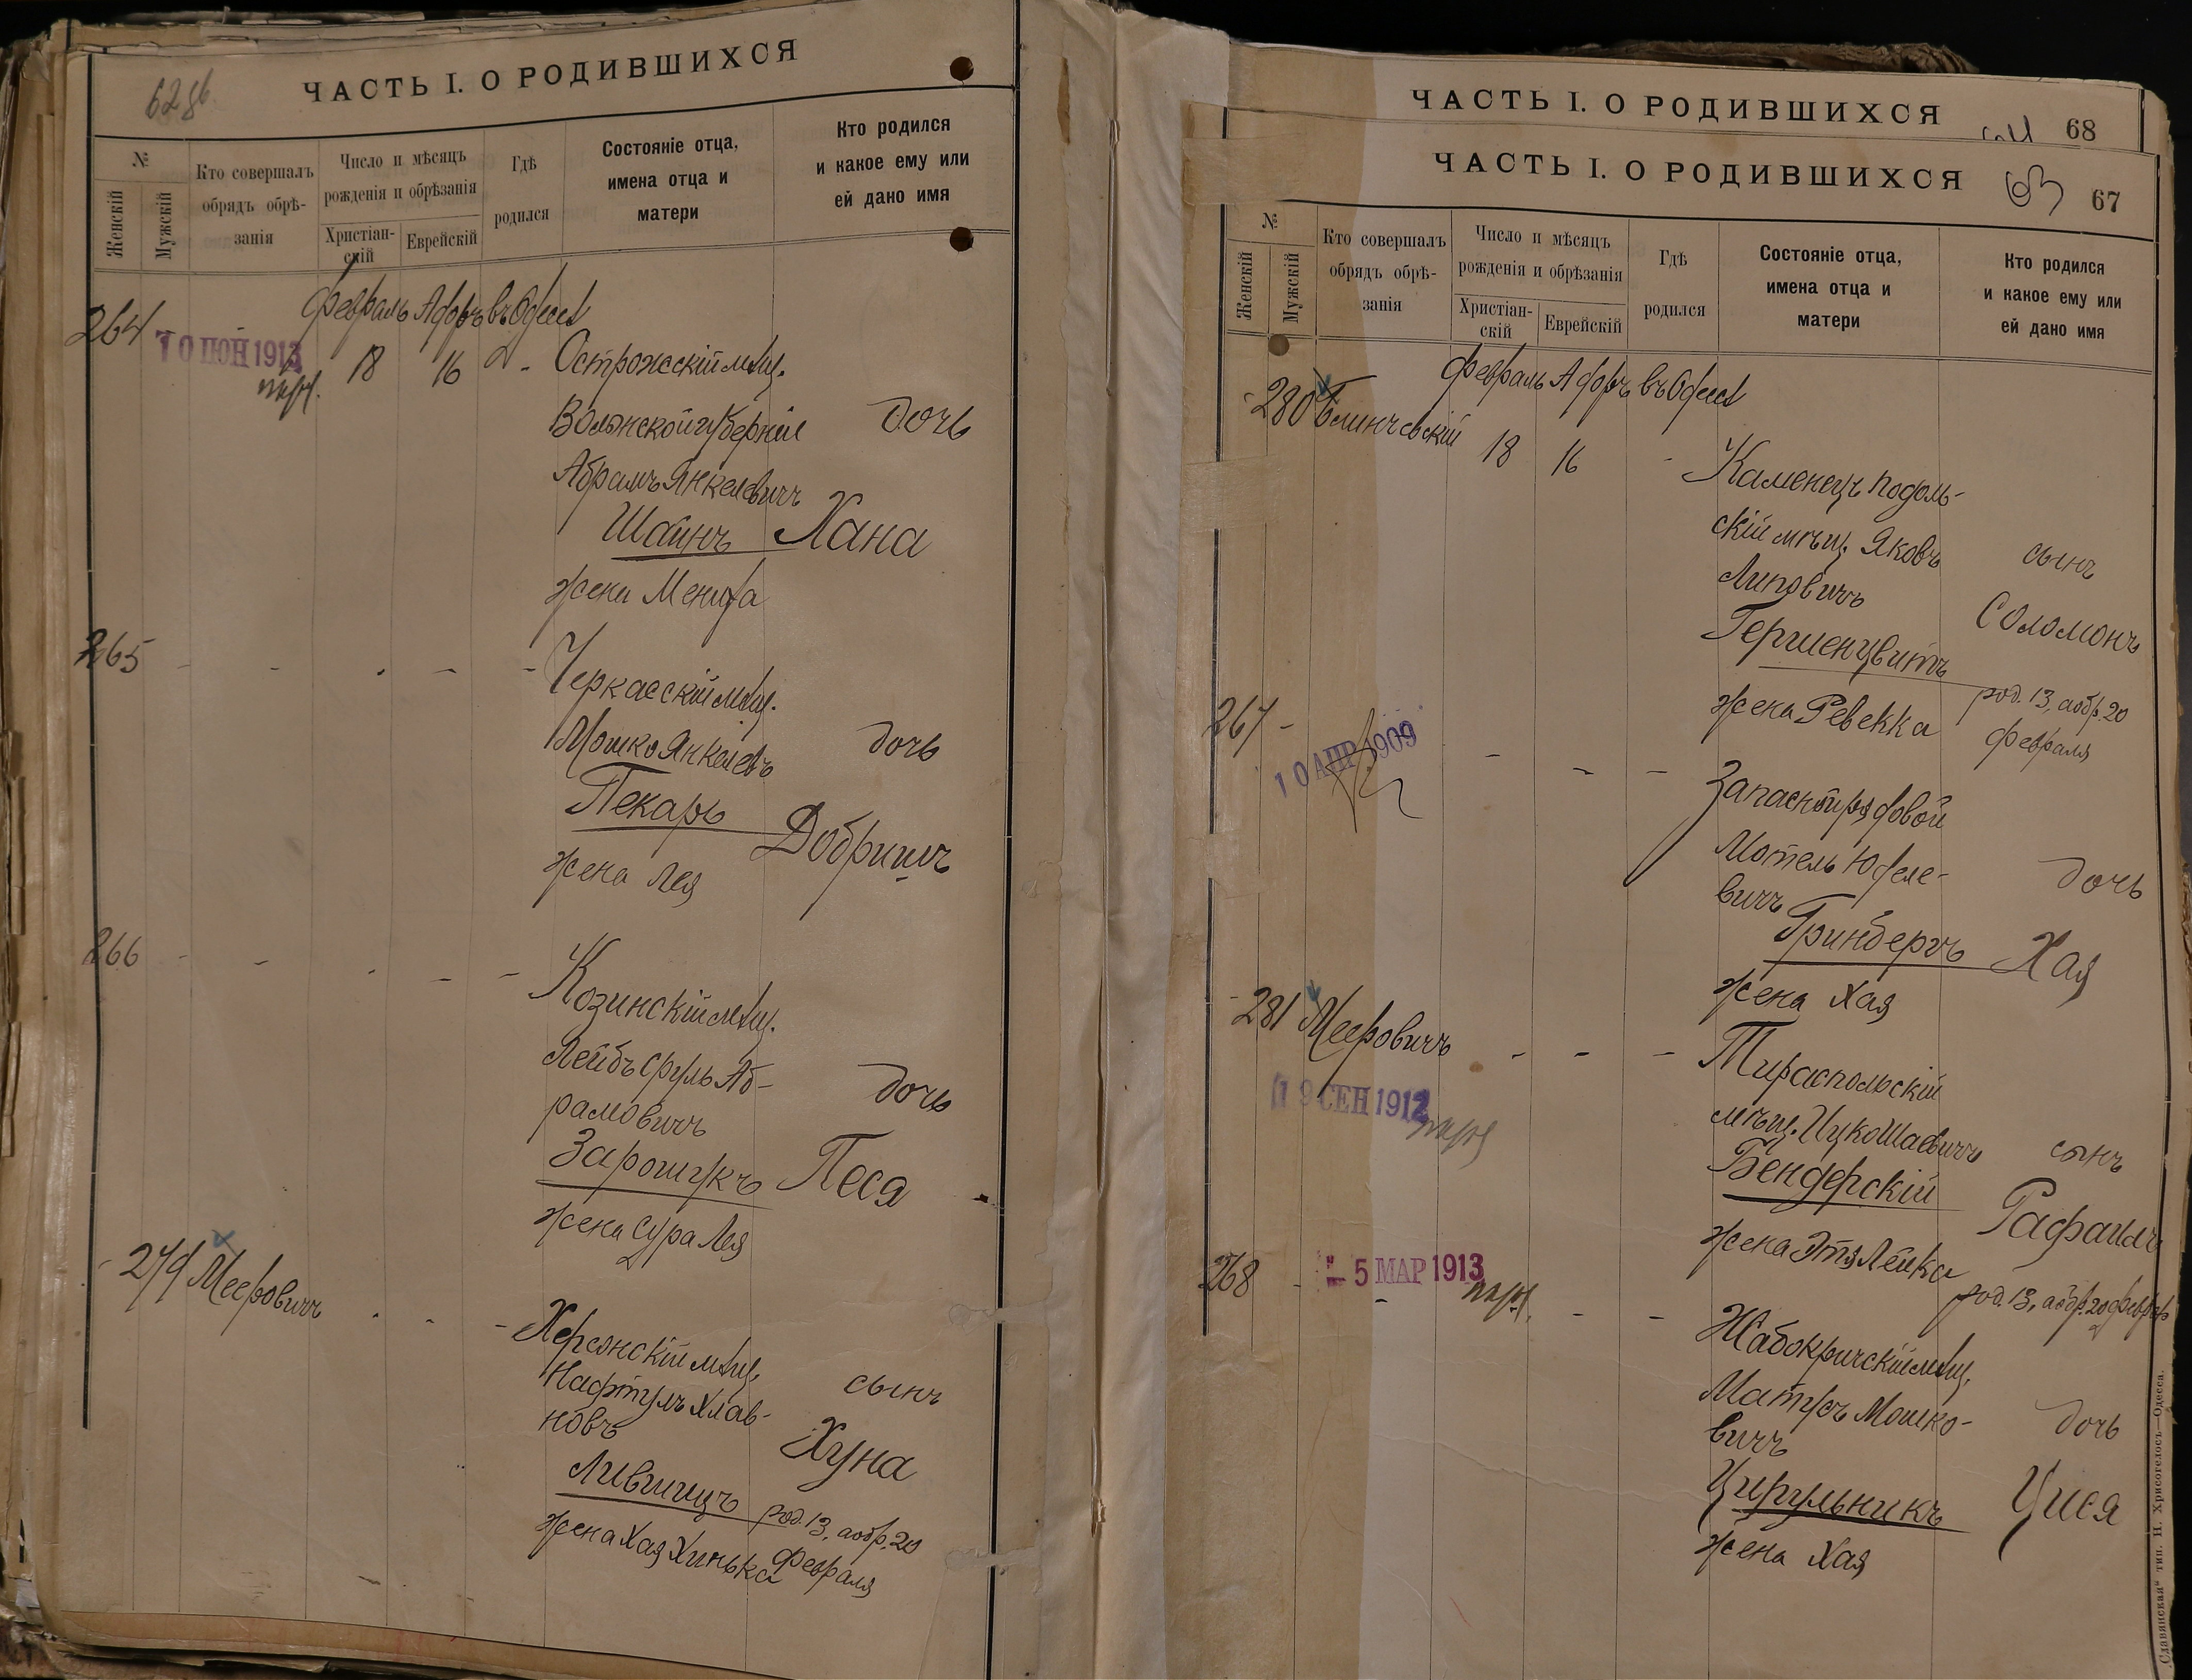 628б
ЧАСТЬ I. О РОДИВШИХСЯ
№
Женскій
Мужскій
Кто совершалъ
обрядъ обрѣ-
занія
Число и мѣсяцъ
рожденія и обрѣзанія
Христіан-
скій
Еврейскій
Гдѣ
родился
Состояніе отца,
имена отца и
матери
Кто родился
и какое ему или
ей дано имя
264
Февраль Адоръ въ Одессѣ
10 ІЮН 1913
18 16 Острожскій мѣщ.
Волынской губерніи дочь
Абрамъ Янкелевичъ
Шаинъ Хана
жена
265 - - - - - Черкасскій мѣщ.
Мошко Янкелевъ дочь
Пекаръ Добришъ
жена Лея
266 - - - - - Козинскій мѣщ.
Лейбъ Сруль Аб-
рамовичъ дочь
Зарощукъ Песя
жена Сура Лея
279 Мееровичъ - - - Херсонскій мѣщ.
Нафтулъ Хлав-
новъ сынъ
Хуна
Лившицъ род. 13, а обр. 20
жена Хая Хинька Февраля
ЧАСТЬ I. О РОДИВШИХСЯ
68
ЧАСТЬ I. О РОДИВШИХСЯ
63 67
№
Женскій
Мужскій
Кто совершалъ
обрядъ обрѣ-
занія
Число и мѣсяцъ
рожденія и обрѣзанія
Христіан-
скій
Еврейскій
Гдѣ
родился
Состояніе отца,
имена отца и
матери
Кто родился
и какое ему или
ей дано имя
Февраль Адоръ въ Одессѣ
280 Блинчевскій 18 16 - Каменецъ Подоль-
скій мѣщ. Яковъ сынъ
Липовичъ Соломонъ
Гершенцвитъ
жена Ревекка род. 13, а обр. 20
Февраля
267 -
10 АПР 1909
- - - Запасной рядовой
Мотель Юделе- дочь
вичъ
Гринбергъ Хая
жена Хая
281 Мееровичъ - - - Тираспольскій
19 СЕН 1912
мѣщ. Ицко Шаевичъ сынъ
Бендерскій Рафаилъ
жена Этя Лейка род. 13, а обр. 20 Февраля
268 -
- 5 МАР 1913
- - - Жабокричскій мѣщ.
Матусъ Мошко- дочь
вичъ
Цирульникъ Цися
жена Хая
„Славянская“ тип. Н. Хрисогелосъ—Одесса.